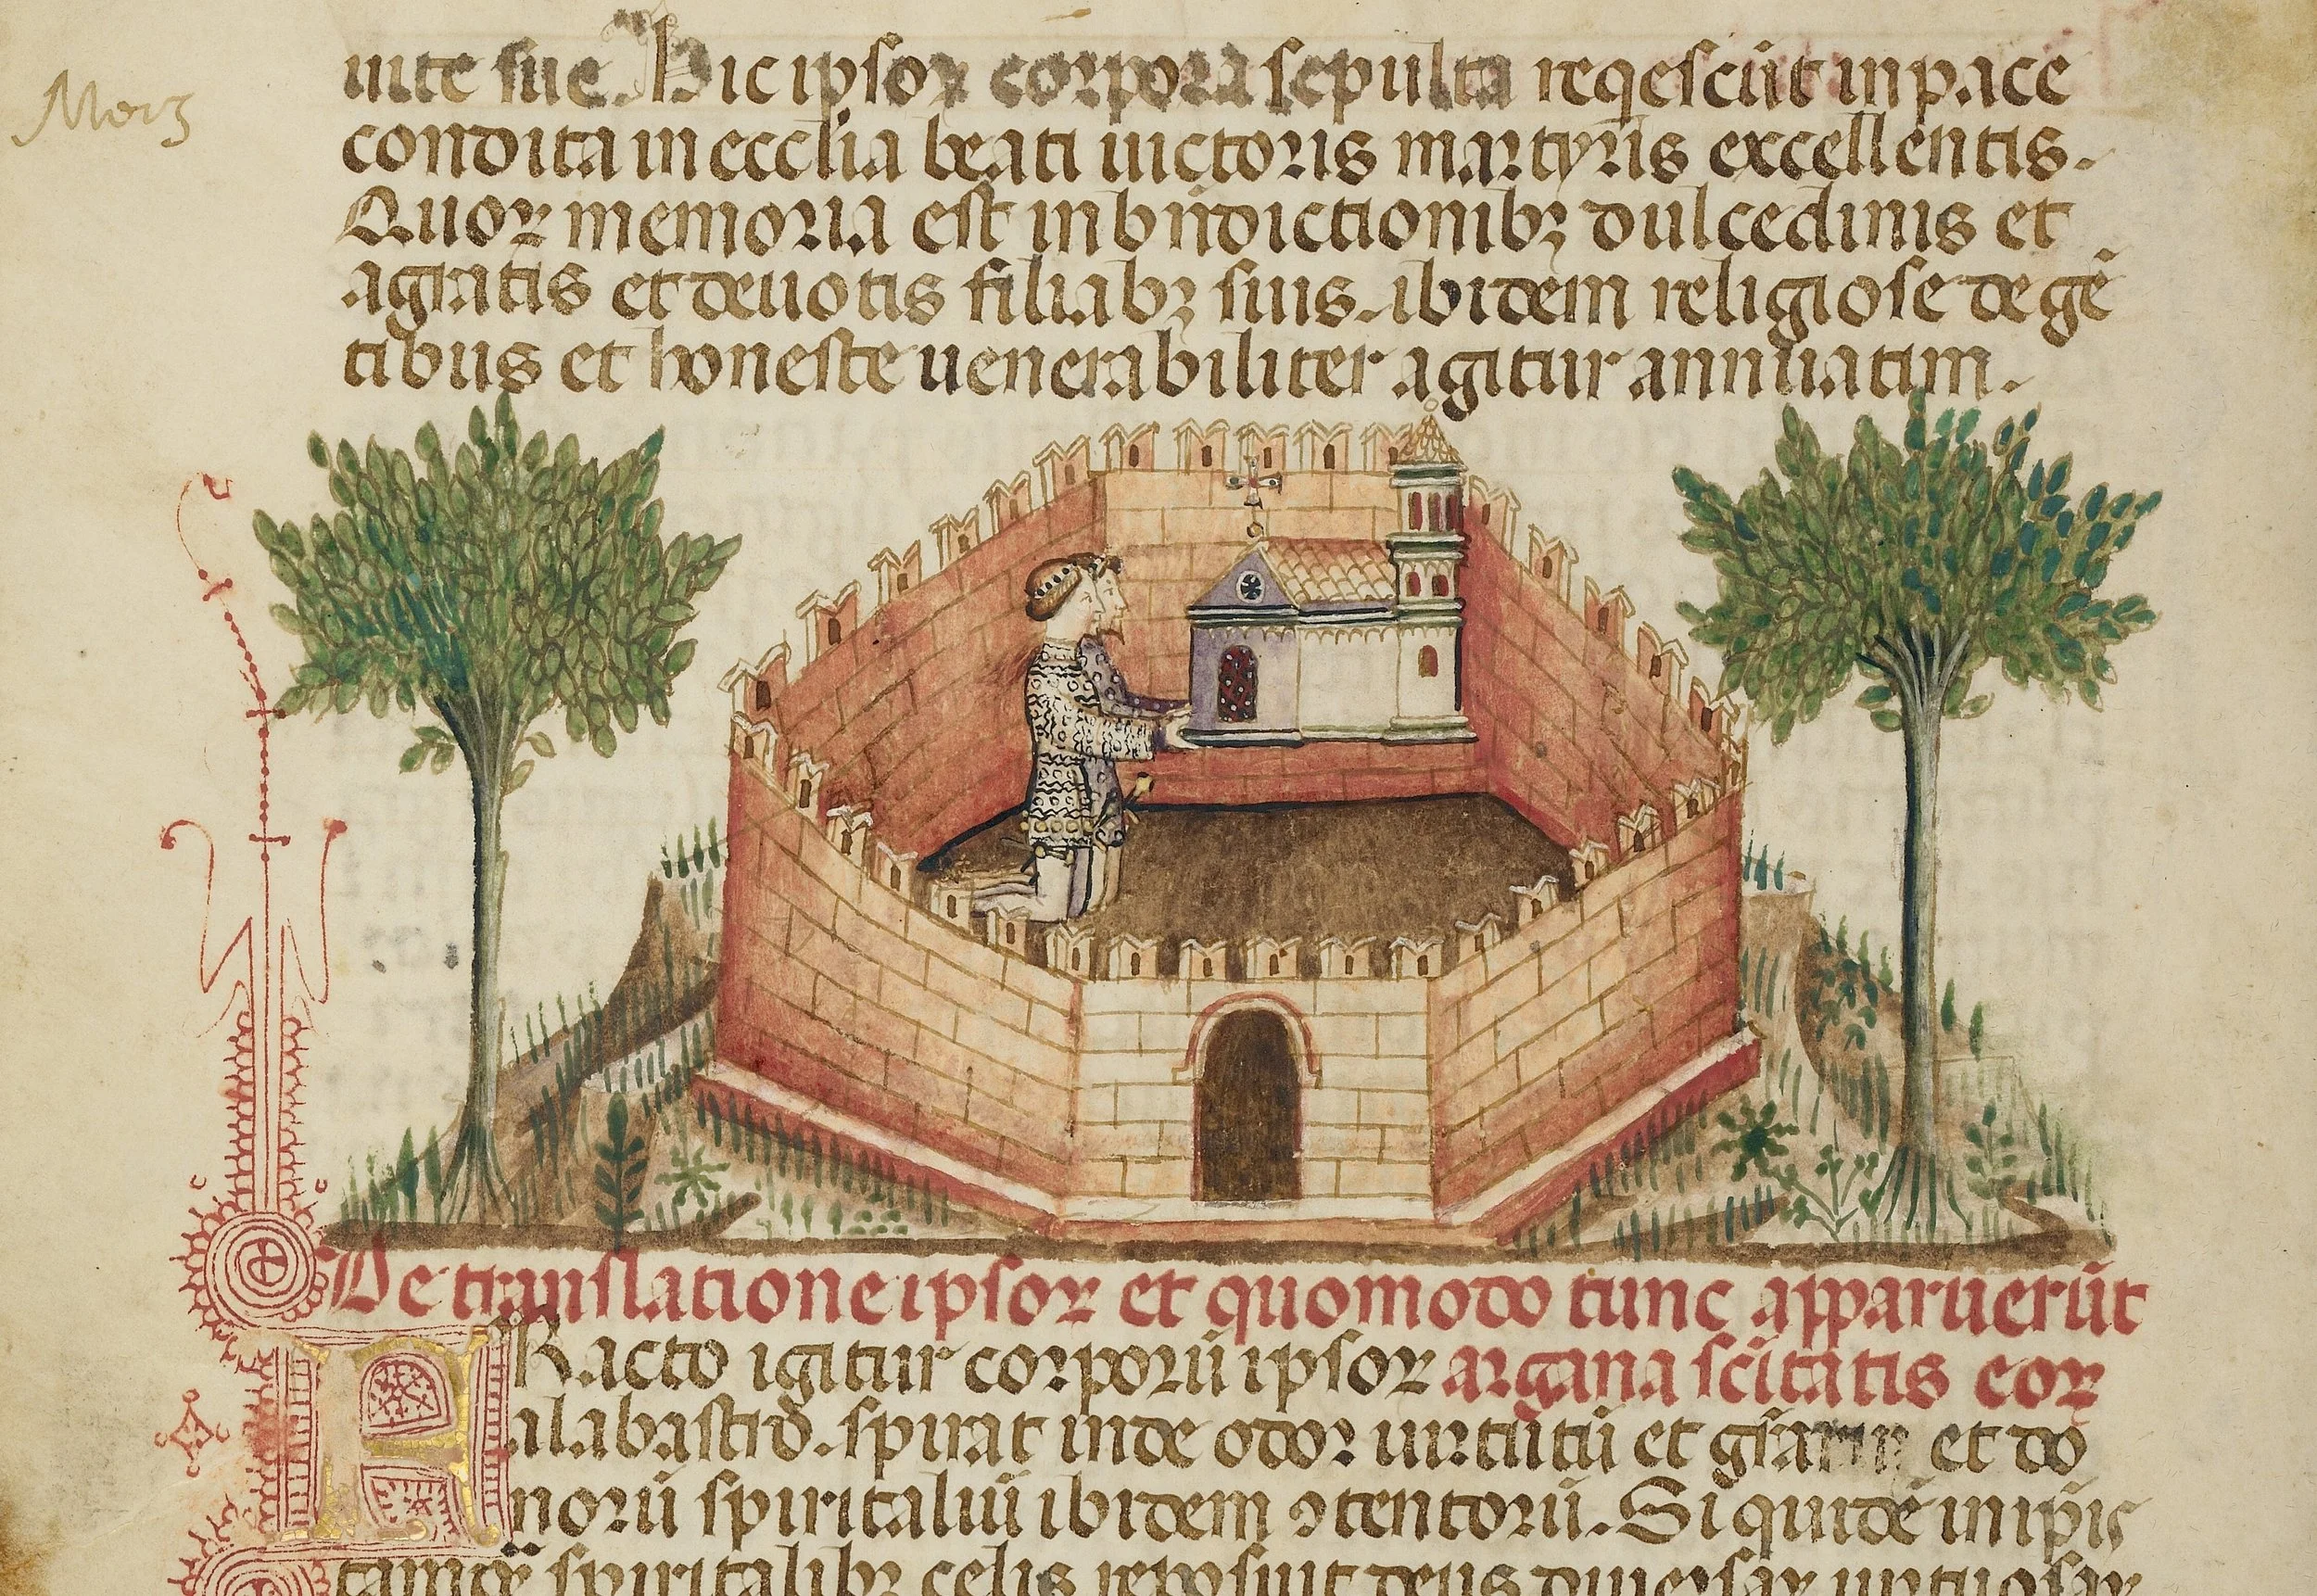 Morz
uite sue. Hic ipsoꝝ corpora sepulta reqescūt in pace
condita in ecclīa beati uictoris martyris excellentis.
Quoꝝ memoria est in bn̄dictionibꝫ dulcedinis et
a gratis et deuotis filiabꝫ suis. ibidem religiose degē
tibus et honeste uenerabiliter agitur annuatim.
De translatione ipsoꝝ et quomodo tunc apparuerūt
FRacto igitur corporū ipsoꝝ argana scītatis eoꝝ
alabastro. spirat inde odor uirtutū et gr̄arum et do
norū spiritaliū ibidem ꝯtentorū. Si quidē in ip̄is
tamqꝫ spiritalibꝫ celis reposuit deus diuersas